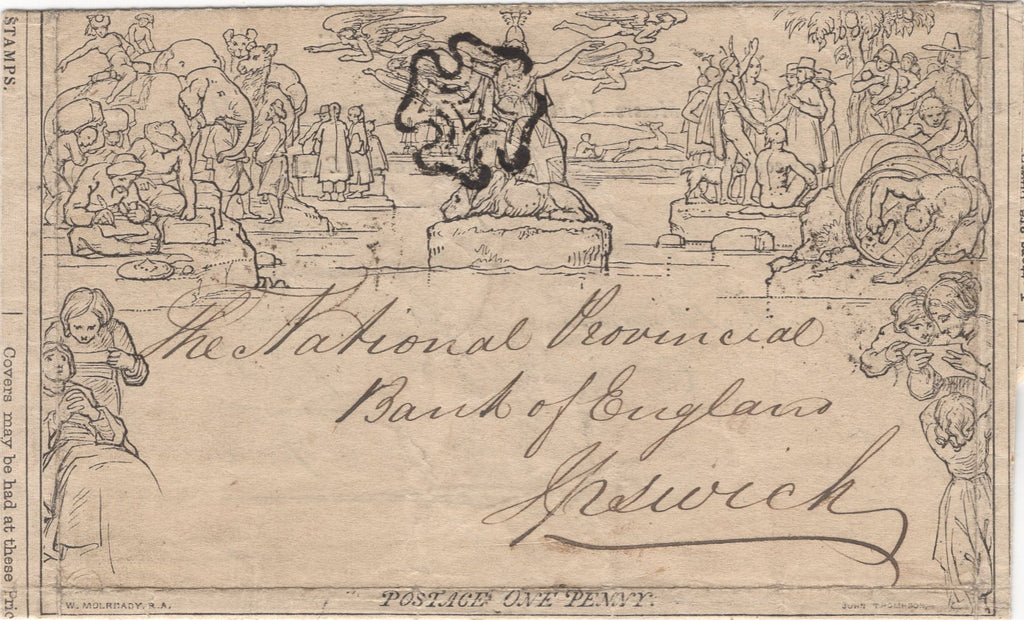 STAMPS.
Covers may be had at these Pric
The National Provincial
Bank of England
Ipswich
POSTAGE ONE PENNY.
W. MULREADY, R.A.
JOHN THOMPSON,